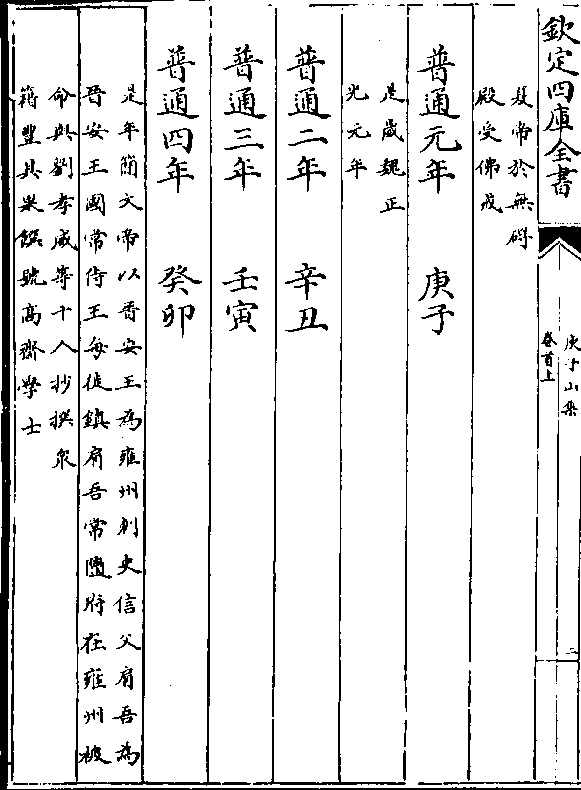 欽定四庫全書
庾子山集
卷首上
二
及帝於無礙
殿受佛戒
普通元年 庚子
是歲魏正
光元年
普通二年 辛丑
普通三年 壬寅
普通四年 癸卯
是年簡文帝以晉安王為雍州刺史信父肩吾為
晉安王國常侍王每徙鎮肩吾常隨府在雍州被
命與劉孝威等十人抄撰衆
籍豐其果饌號高齋學士